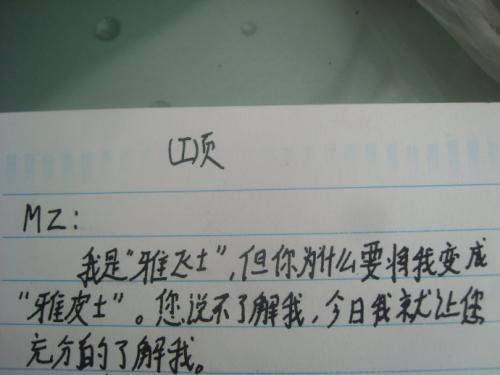 (工)页
MZ:
我是“雅飞士”,但你为什么要将我变成
“雅皮士”。您说不了解我,今日我就让您
充分的了解我。